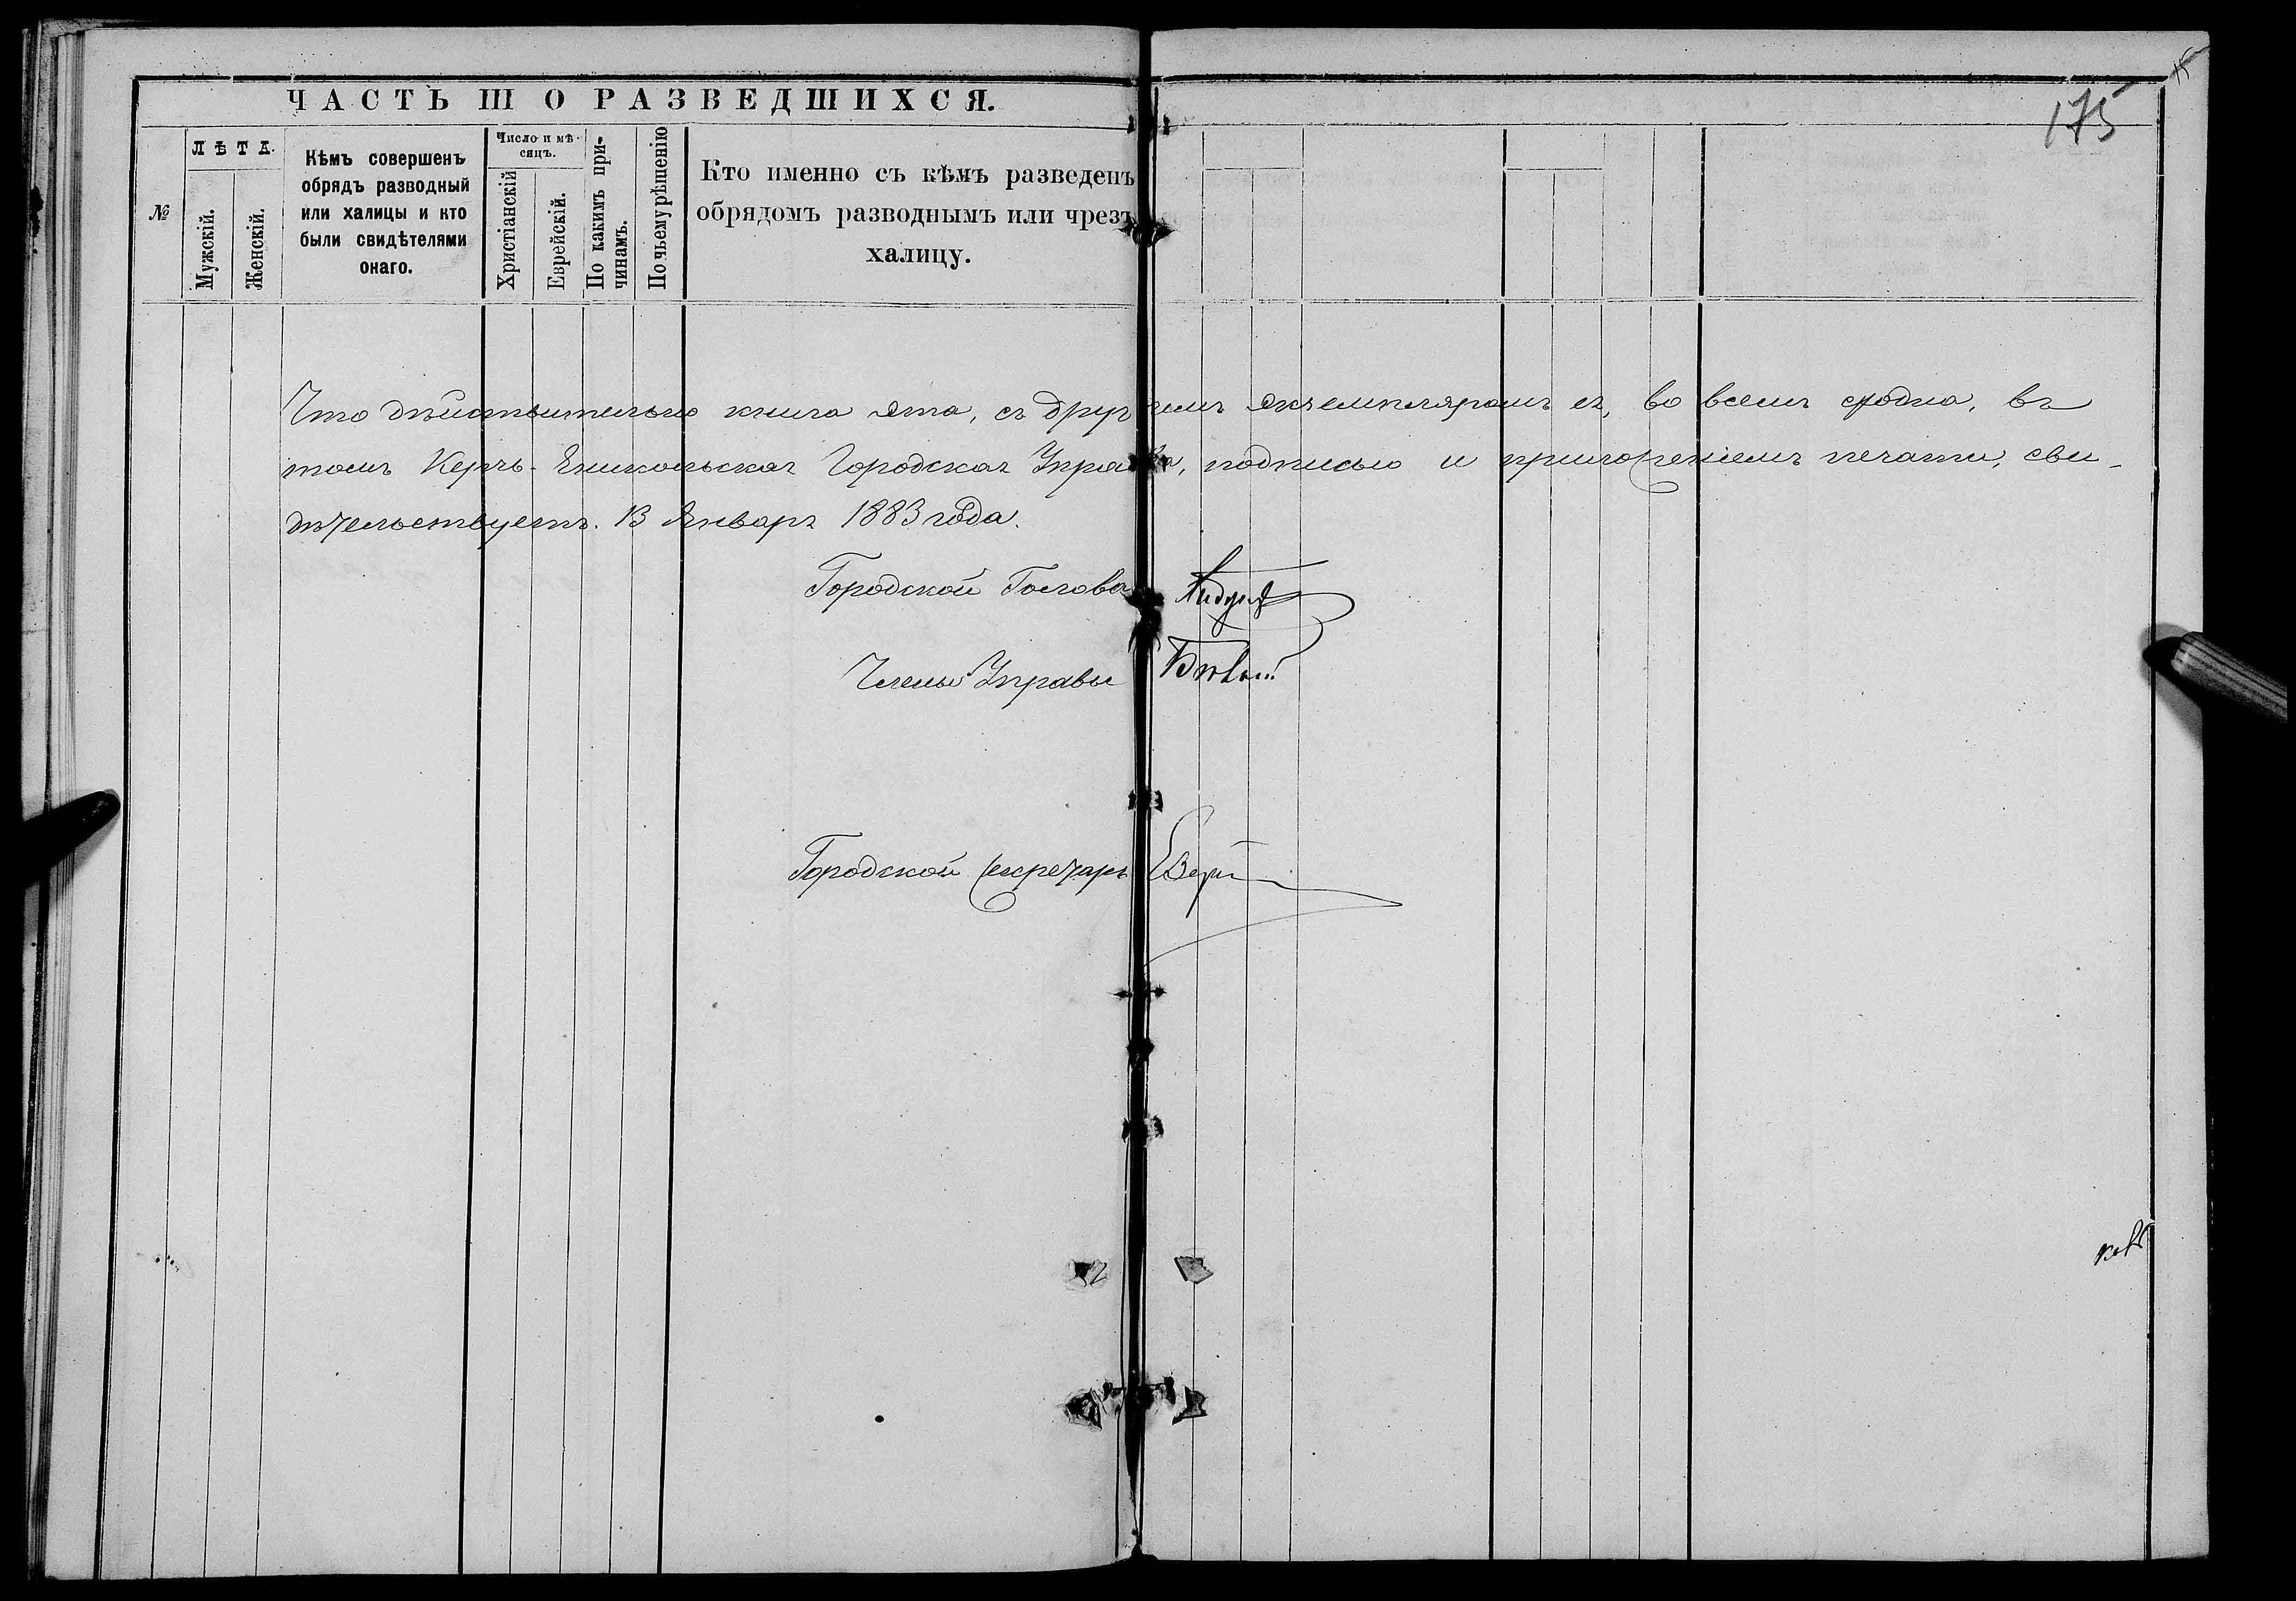 ЧАСТЬ III О РАЗВЕДШИХСЯ.
175
№
ЛѢТА.
Мужскій.
Женскій.
Кѣмъ совершенъ
обрядъ разводный
или халицы и кто
были свидѣтелями
онаго.
Число и мѣ-
сяцъ.
Христіанскій
Еврейскій.
По какимъ при-
чинамъ.
По чьему рѣшенію
Кто именно съ кѣмъ разведенъ
обрядомъ разводнымъ или чрезъ
халицу.
Что дѣйствительно книга эта, съ другимъ экземпляромъ ея, во всемъ сходна, въ
томъ Керчь-Еникольская Городская Управа, подписью и приложеніемъ печати, сви-
дѣтельствуетъ. 13 Января 1883 года.
Городской Голова
Члены Управы
Городской Секретарь